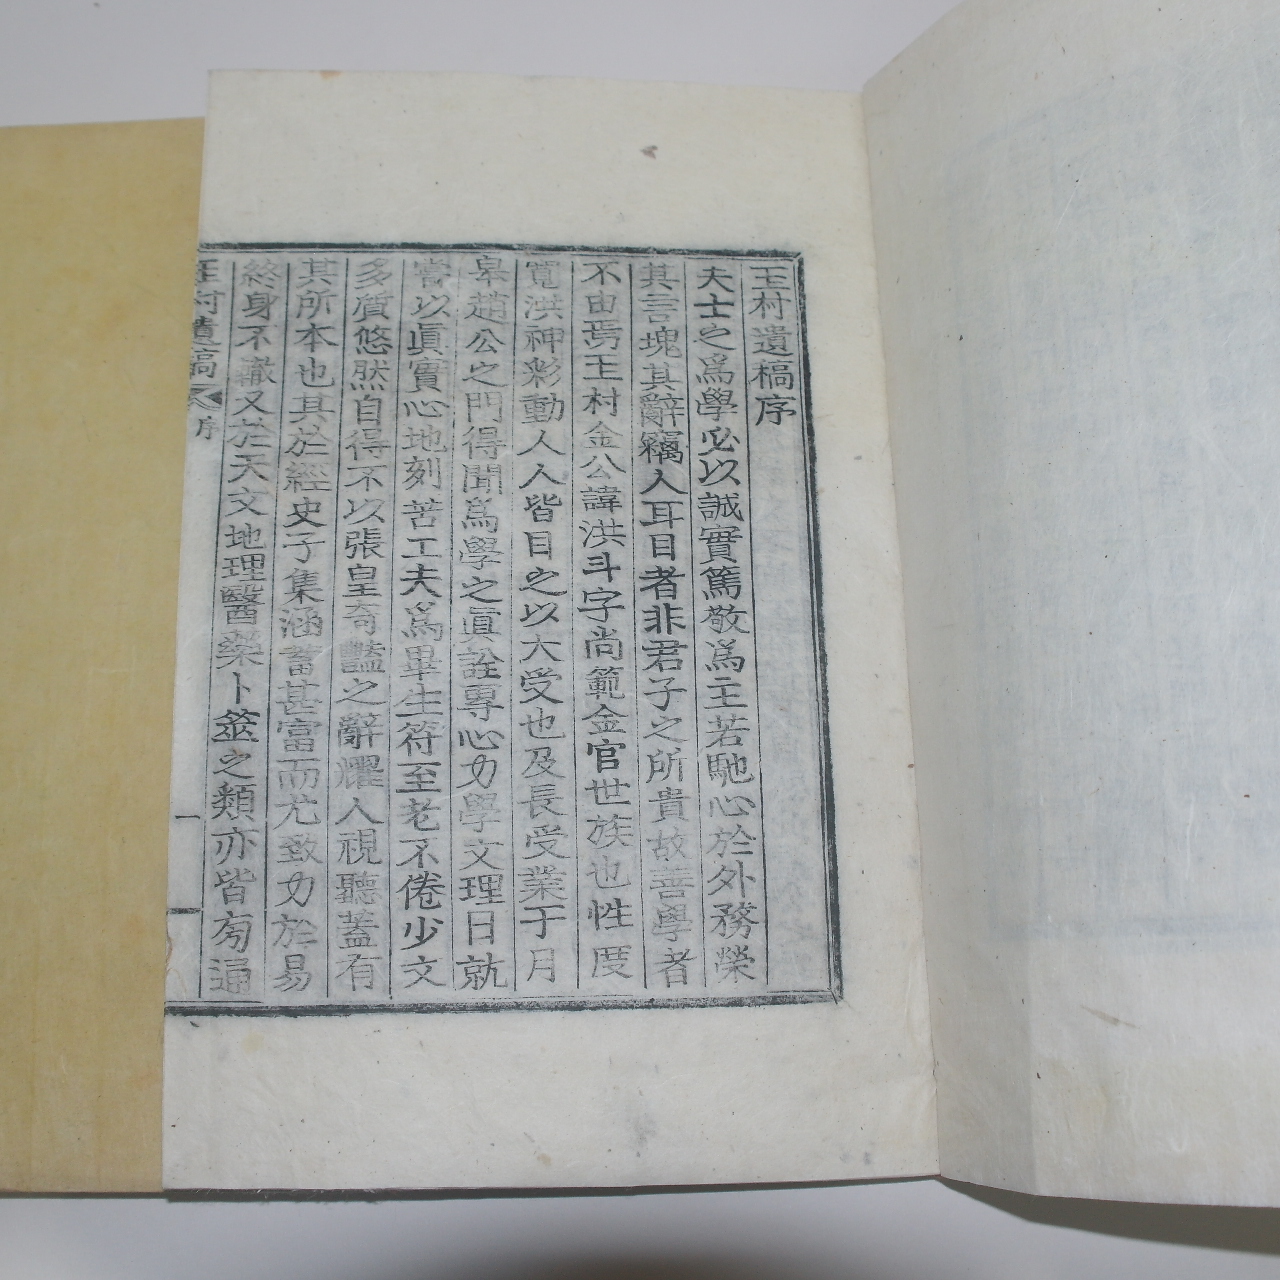 玉村遺稿序
夫士之爲學必以誠實篤敬爲主若馳心於外務榮
其言塊其辭竊人耳目者非君子之所貴故善學者
不由焉玉村金公諱洪斗字尚範金官世族也性度
寬洪神彩動人人皆目之以大受也及長受業于月
皐趙公之門得聞爲學之眞詮專心力學文理日就
嘗以眞實心地刻苦工夫爲畢生符至老不倦少文
多質悠然自得不以張皇奇豔之辭耀人視聽蓋有
其所本也其於經史子集涵蓄甚富而尤致力於易
終身不輟又於天文地理醫藥卜筮之類亦皆旁通
玉村遺稿 序 一